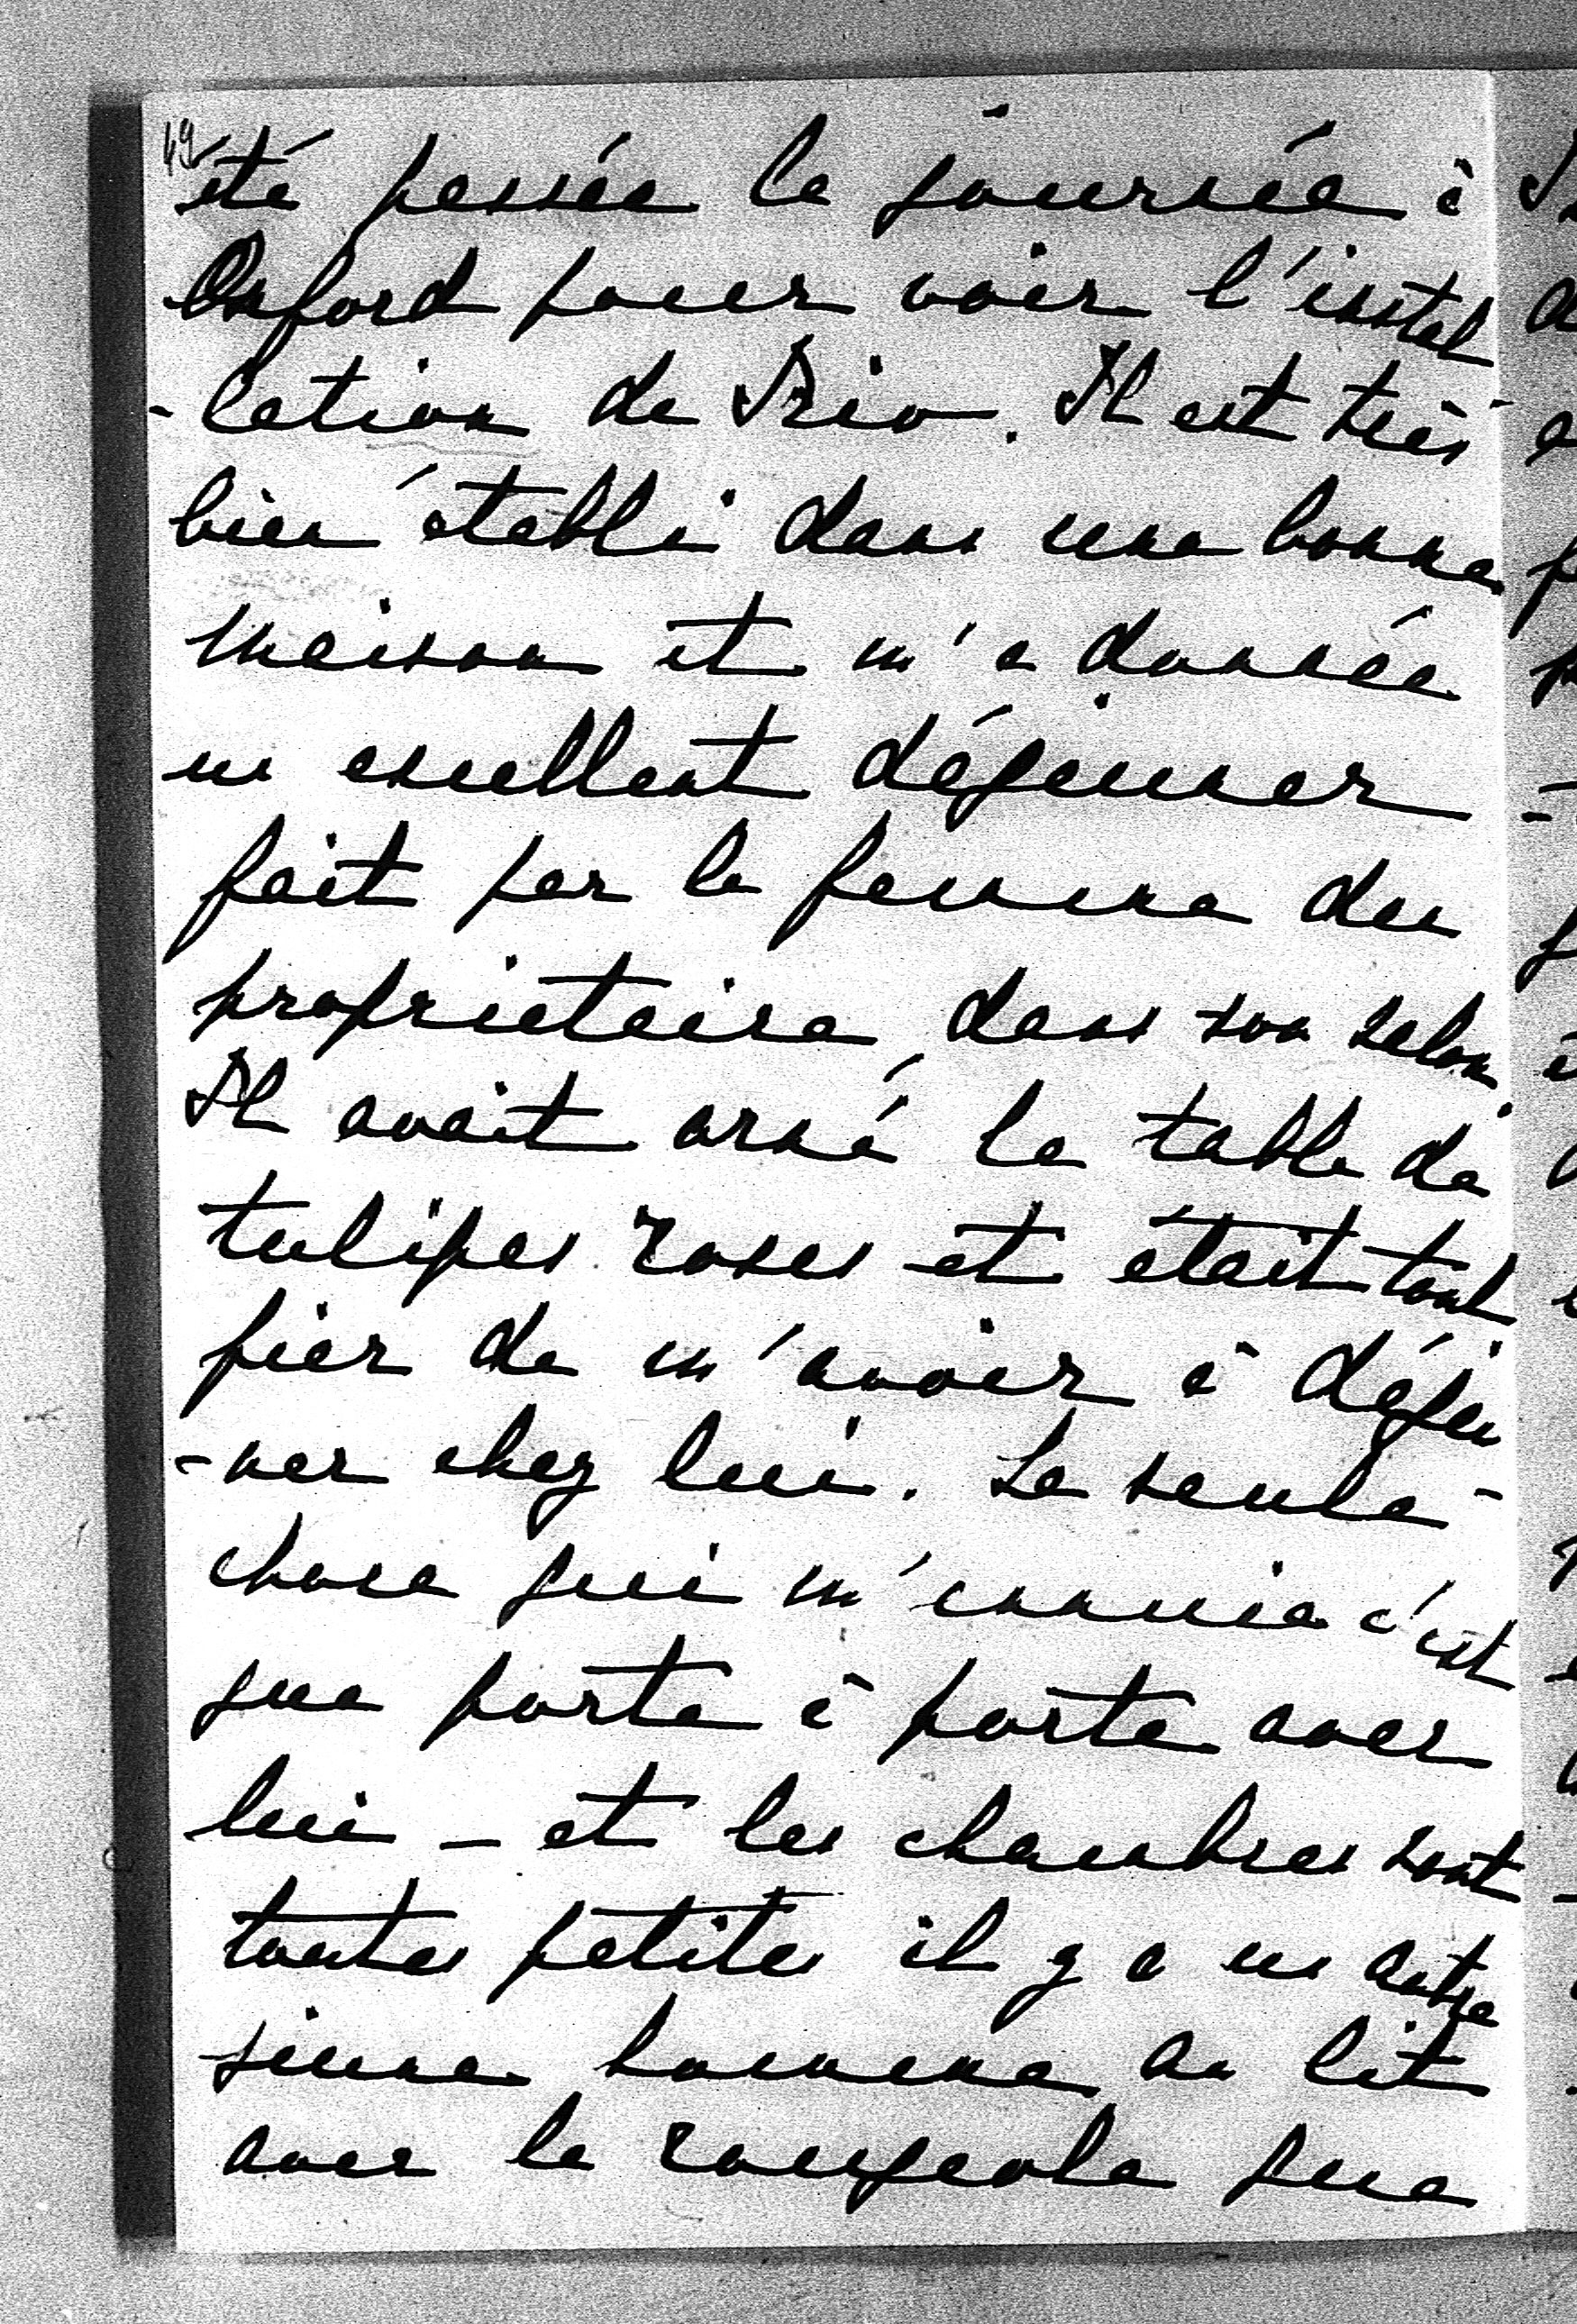 49
été passée la journée à
Oxford pour voir l'instal
-lation de Frio. Il est très
bien établi dans une bonne
maison et m'a donnée
un excellent déjeuner
fait par la femme du
proprietaire, dans son salon.
Il avait orné la table de
tulipes roses et était tout
fier de m'avoir à déjeu
-ner chez lui. La seule
chose qui m'ennuie c'est
que porte à porte avec
lui – et les chambres sont
toutes petites il y a un autre
jeune homme au lit
avec la rougeole que